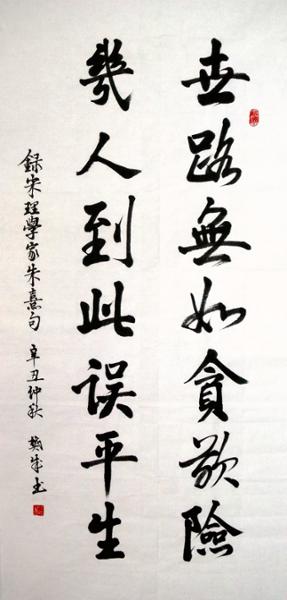 世路無如貪欲險
幾人到此误平生
録宋理學家朱熹句 辛丑仲秋 书